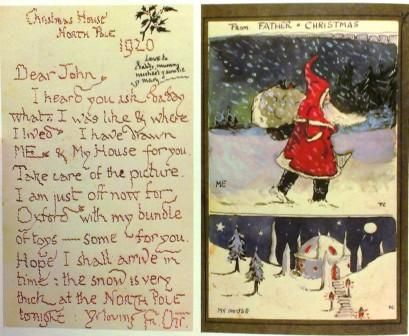 Christmas House
NORTH POLE
1920
Love to
daddy, mummy
Dear John
I heard you ask daddy
what I was like & where
I lived. I have drawn
ME & My House for you.
Take care of the picture.
I am just off now for
Oxford with my bundle
of toys — some for you.
Hope I shall arrive in
time: the snow is very
thick at the NORTH POLE
tonight: Yr loving Fr. Chr.
From FATHER CHRISTMAS
ME
FC
MY HOUSE
FC